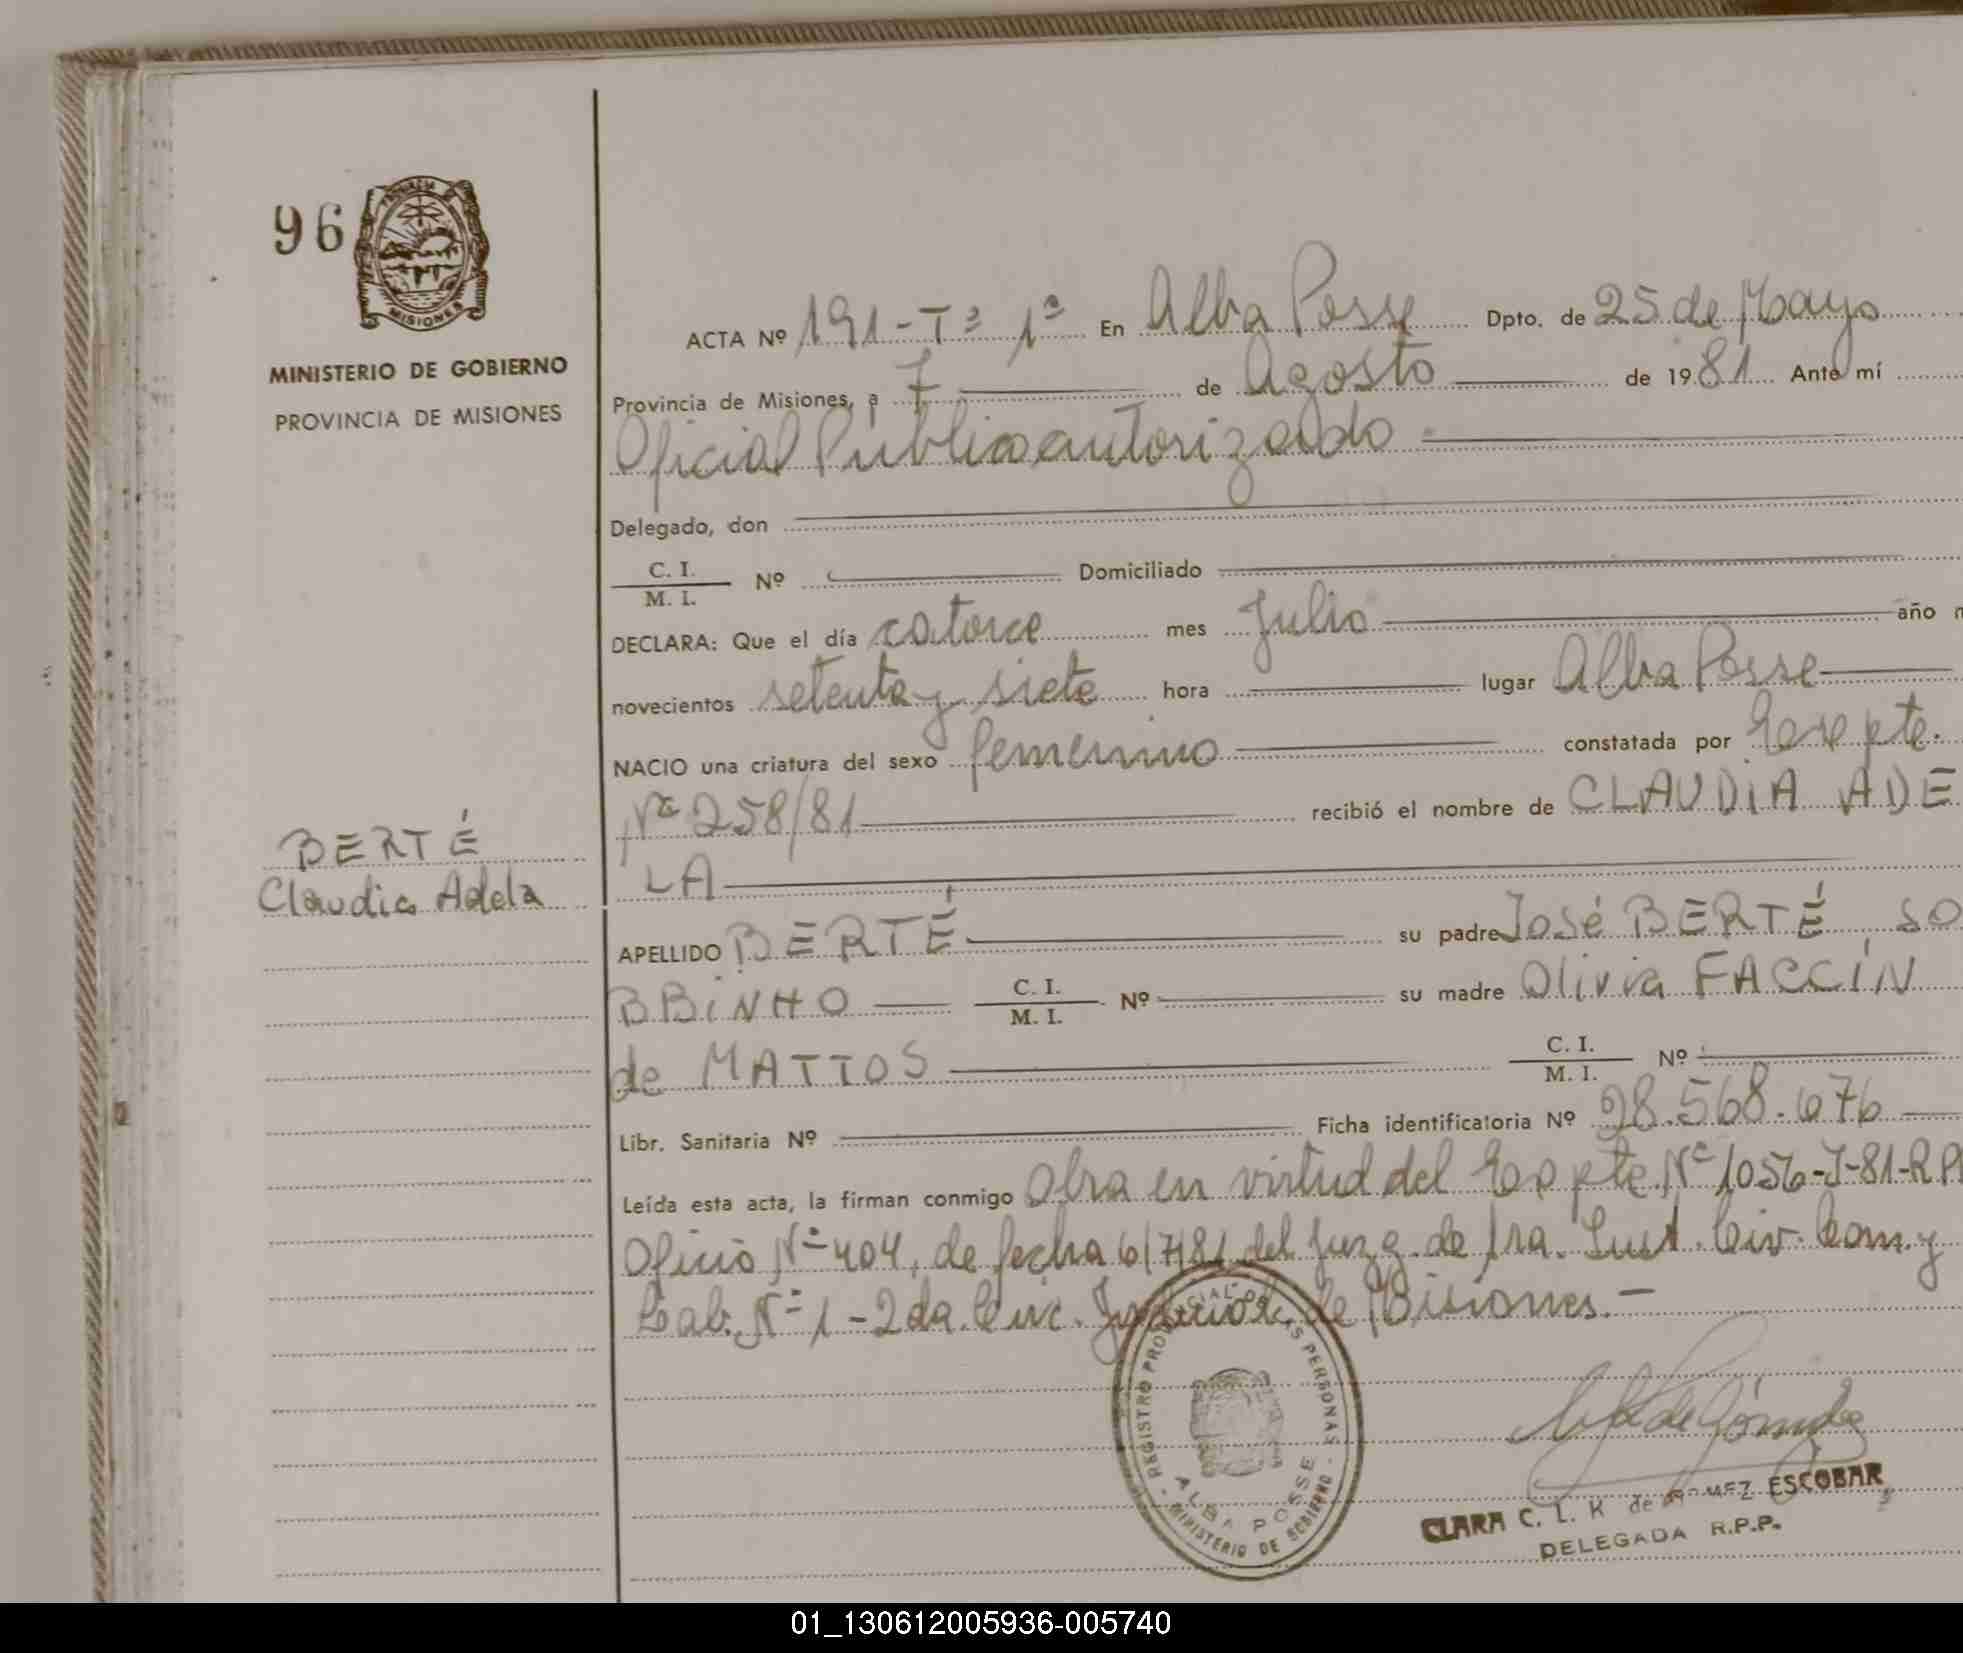 96
PROVINCIA DE
MISIONES
MINISTERIO DE GOBIERNO
PROVINCIA DE MISIONES
ACTA Nº 191-Tº 1º En Alba Posse Dpto. de 25 de Mayo
Provincia de Misiones, a 7 de Agosto de 1981 Ante mí
Oficial Público autorizado
Delegado, don
C. I.
M. I. Nº Domiciliado
DECLARA: Que el día catorce mes Julio año
novecientos setenta y siete hora lugar Alba Posse
NACIO una criatura del sexo femenino constatada por Expte.
Nº 258/81 recibió el nombre de CLAUDIA ADE
BERTÉ
Claudia Adela
LA
APELLIDO BERTÉ su padre José BERTÉ SO
BBiNHO C. I. M. I. Nº su madre Olivia FACCÍN
de MATTOS C. I. M. I. Nº
Libr. Sanitaria Nº Ficha identificatoria Nº 28.568.676
Leída esta acta, la firman conmigo Obra en virtud del Expte. Nº 1056-J-81-R.P
Oficio Nº 404, de fecha 6/7/81 del Juzg. de 1ra. Inst. Civ. Com. y
Lab. Nº 1 - 2da. Circ. Judicial de Misiones.-
REGISTRO PROVINCIAL DE LAS PERSONAS
ALBA POSSE
MINISTERIO DE GOBIERNO
de Gómez
CLARA C. L. K de GOMEZ ESCOBAR
DELEGADA R.P.P.
01_130612005936-005740